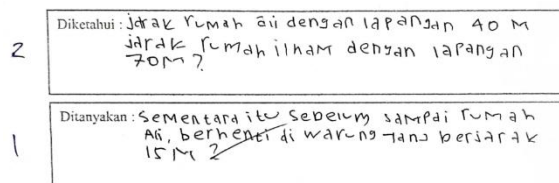 2
Diketahui : jarak rumah ali dengan lapangan 40 M
jarak rumah ilham dengan lapangan
70M ?
1
Ditanyakan : sementara itu sebelum sampai rumah
Ali, berhenti di warung yang berjarak
15 M ?